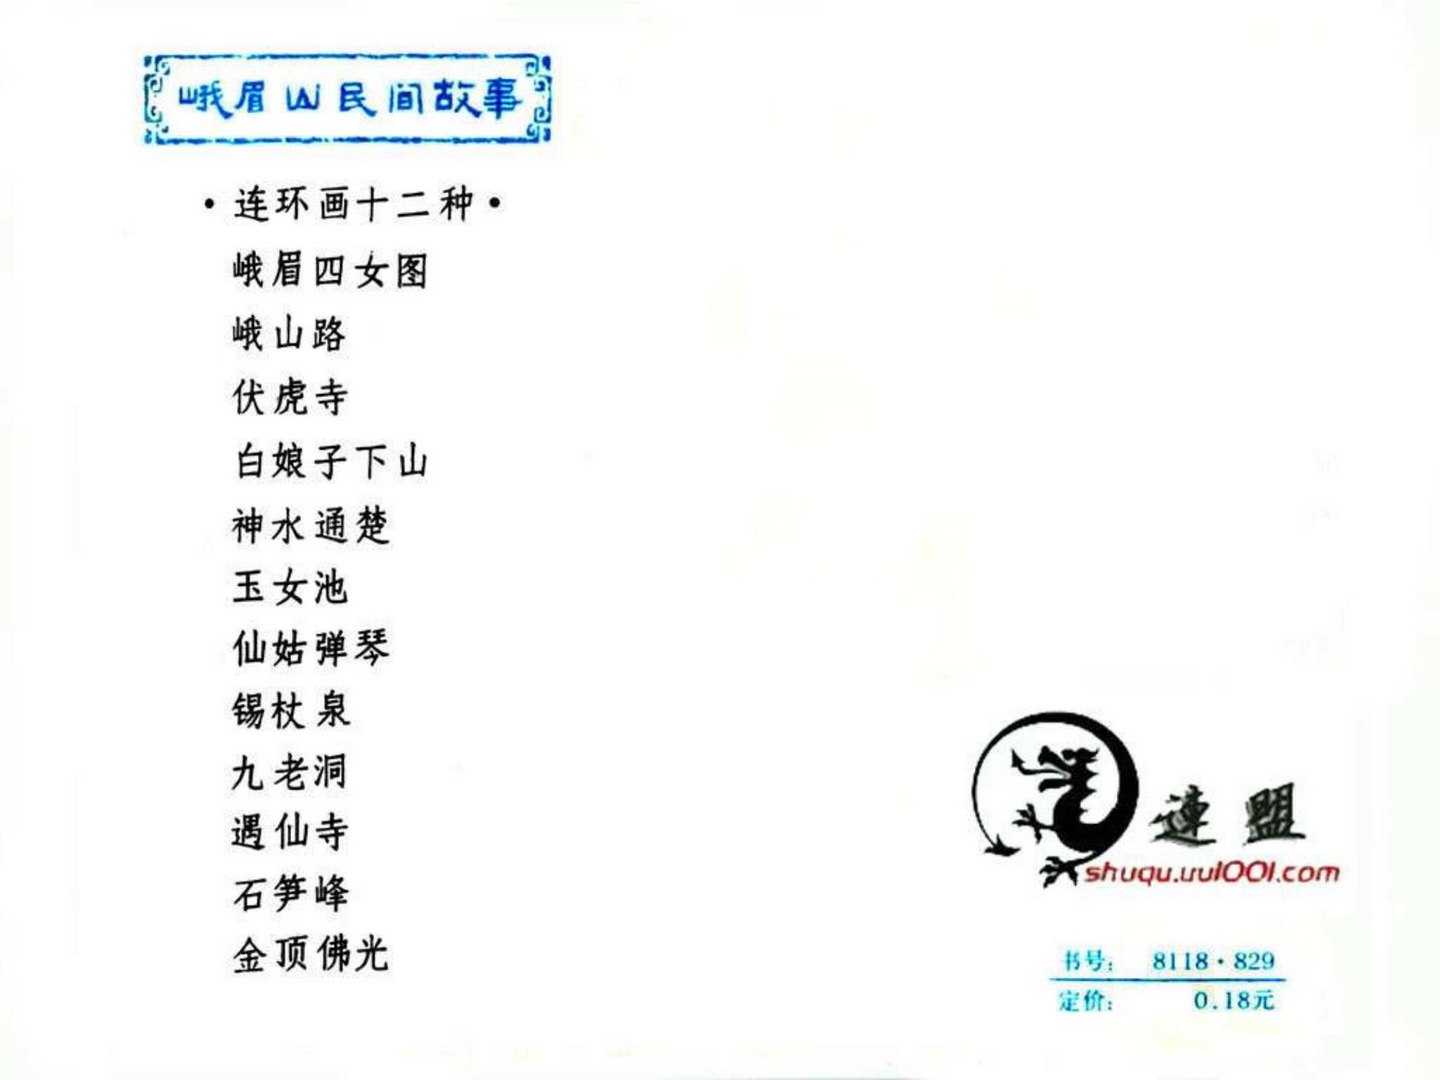 峨眉山民间故事
·连环画十二种·
峨眉四女图
峨山路
伏虎寺
白娘子下山
神水通楚
玉女池
仙姑弹琴
锡杖泉
九老洞
遇仙寺
石笋峰
金顶佛光
連盟
shuqu.uu1001.com
书号： 8118·829
定价： 0.18元